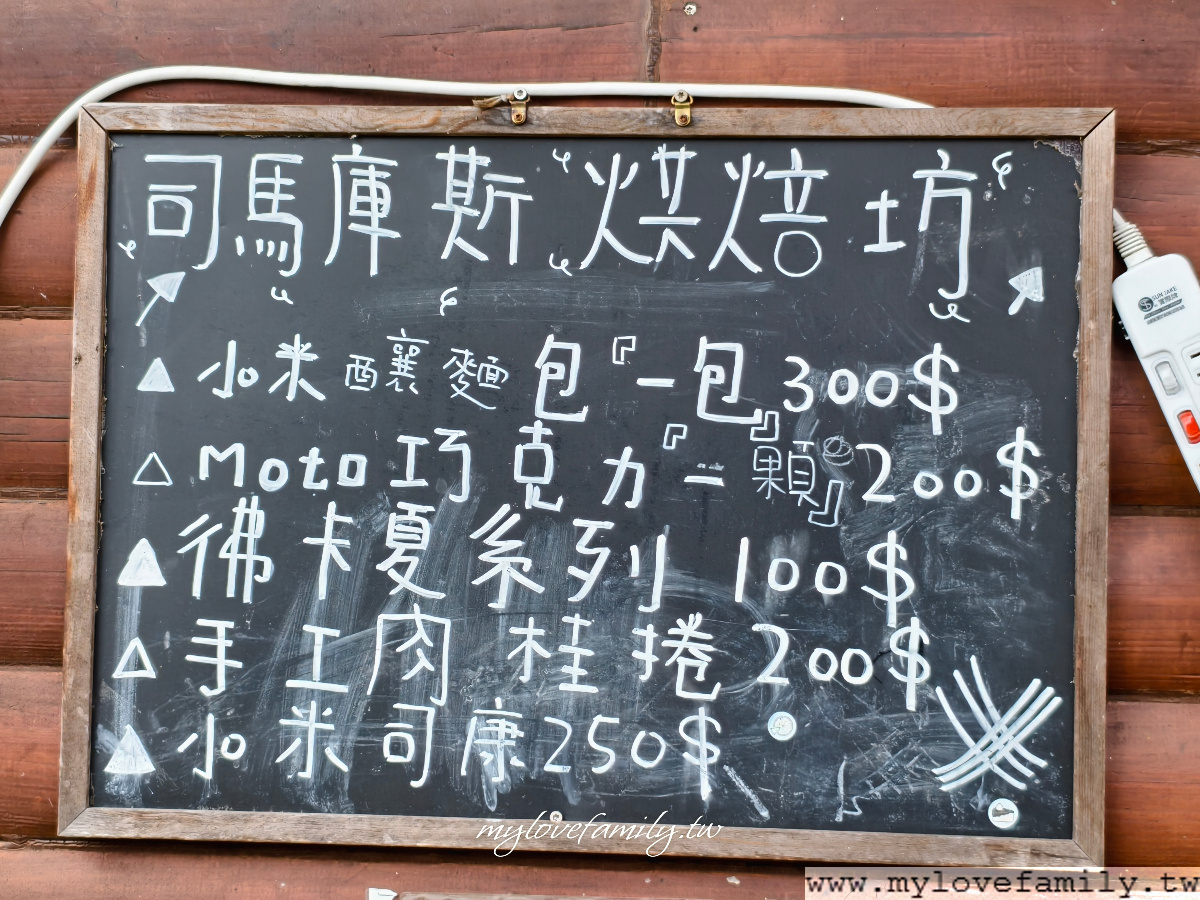 司馬庫斯烘焙坊
小米釀麵包『一包』300$
Moto巧克力『一顆』200$
彿卡夏系列 100$
手工肉桂捲 200$
小米司康250$
SUN JAKE
mylovefamily.tw
www.mylovefamily.tw